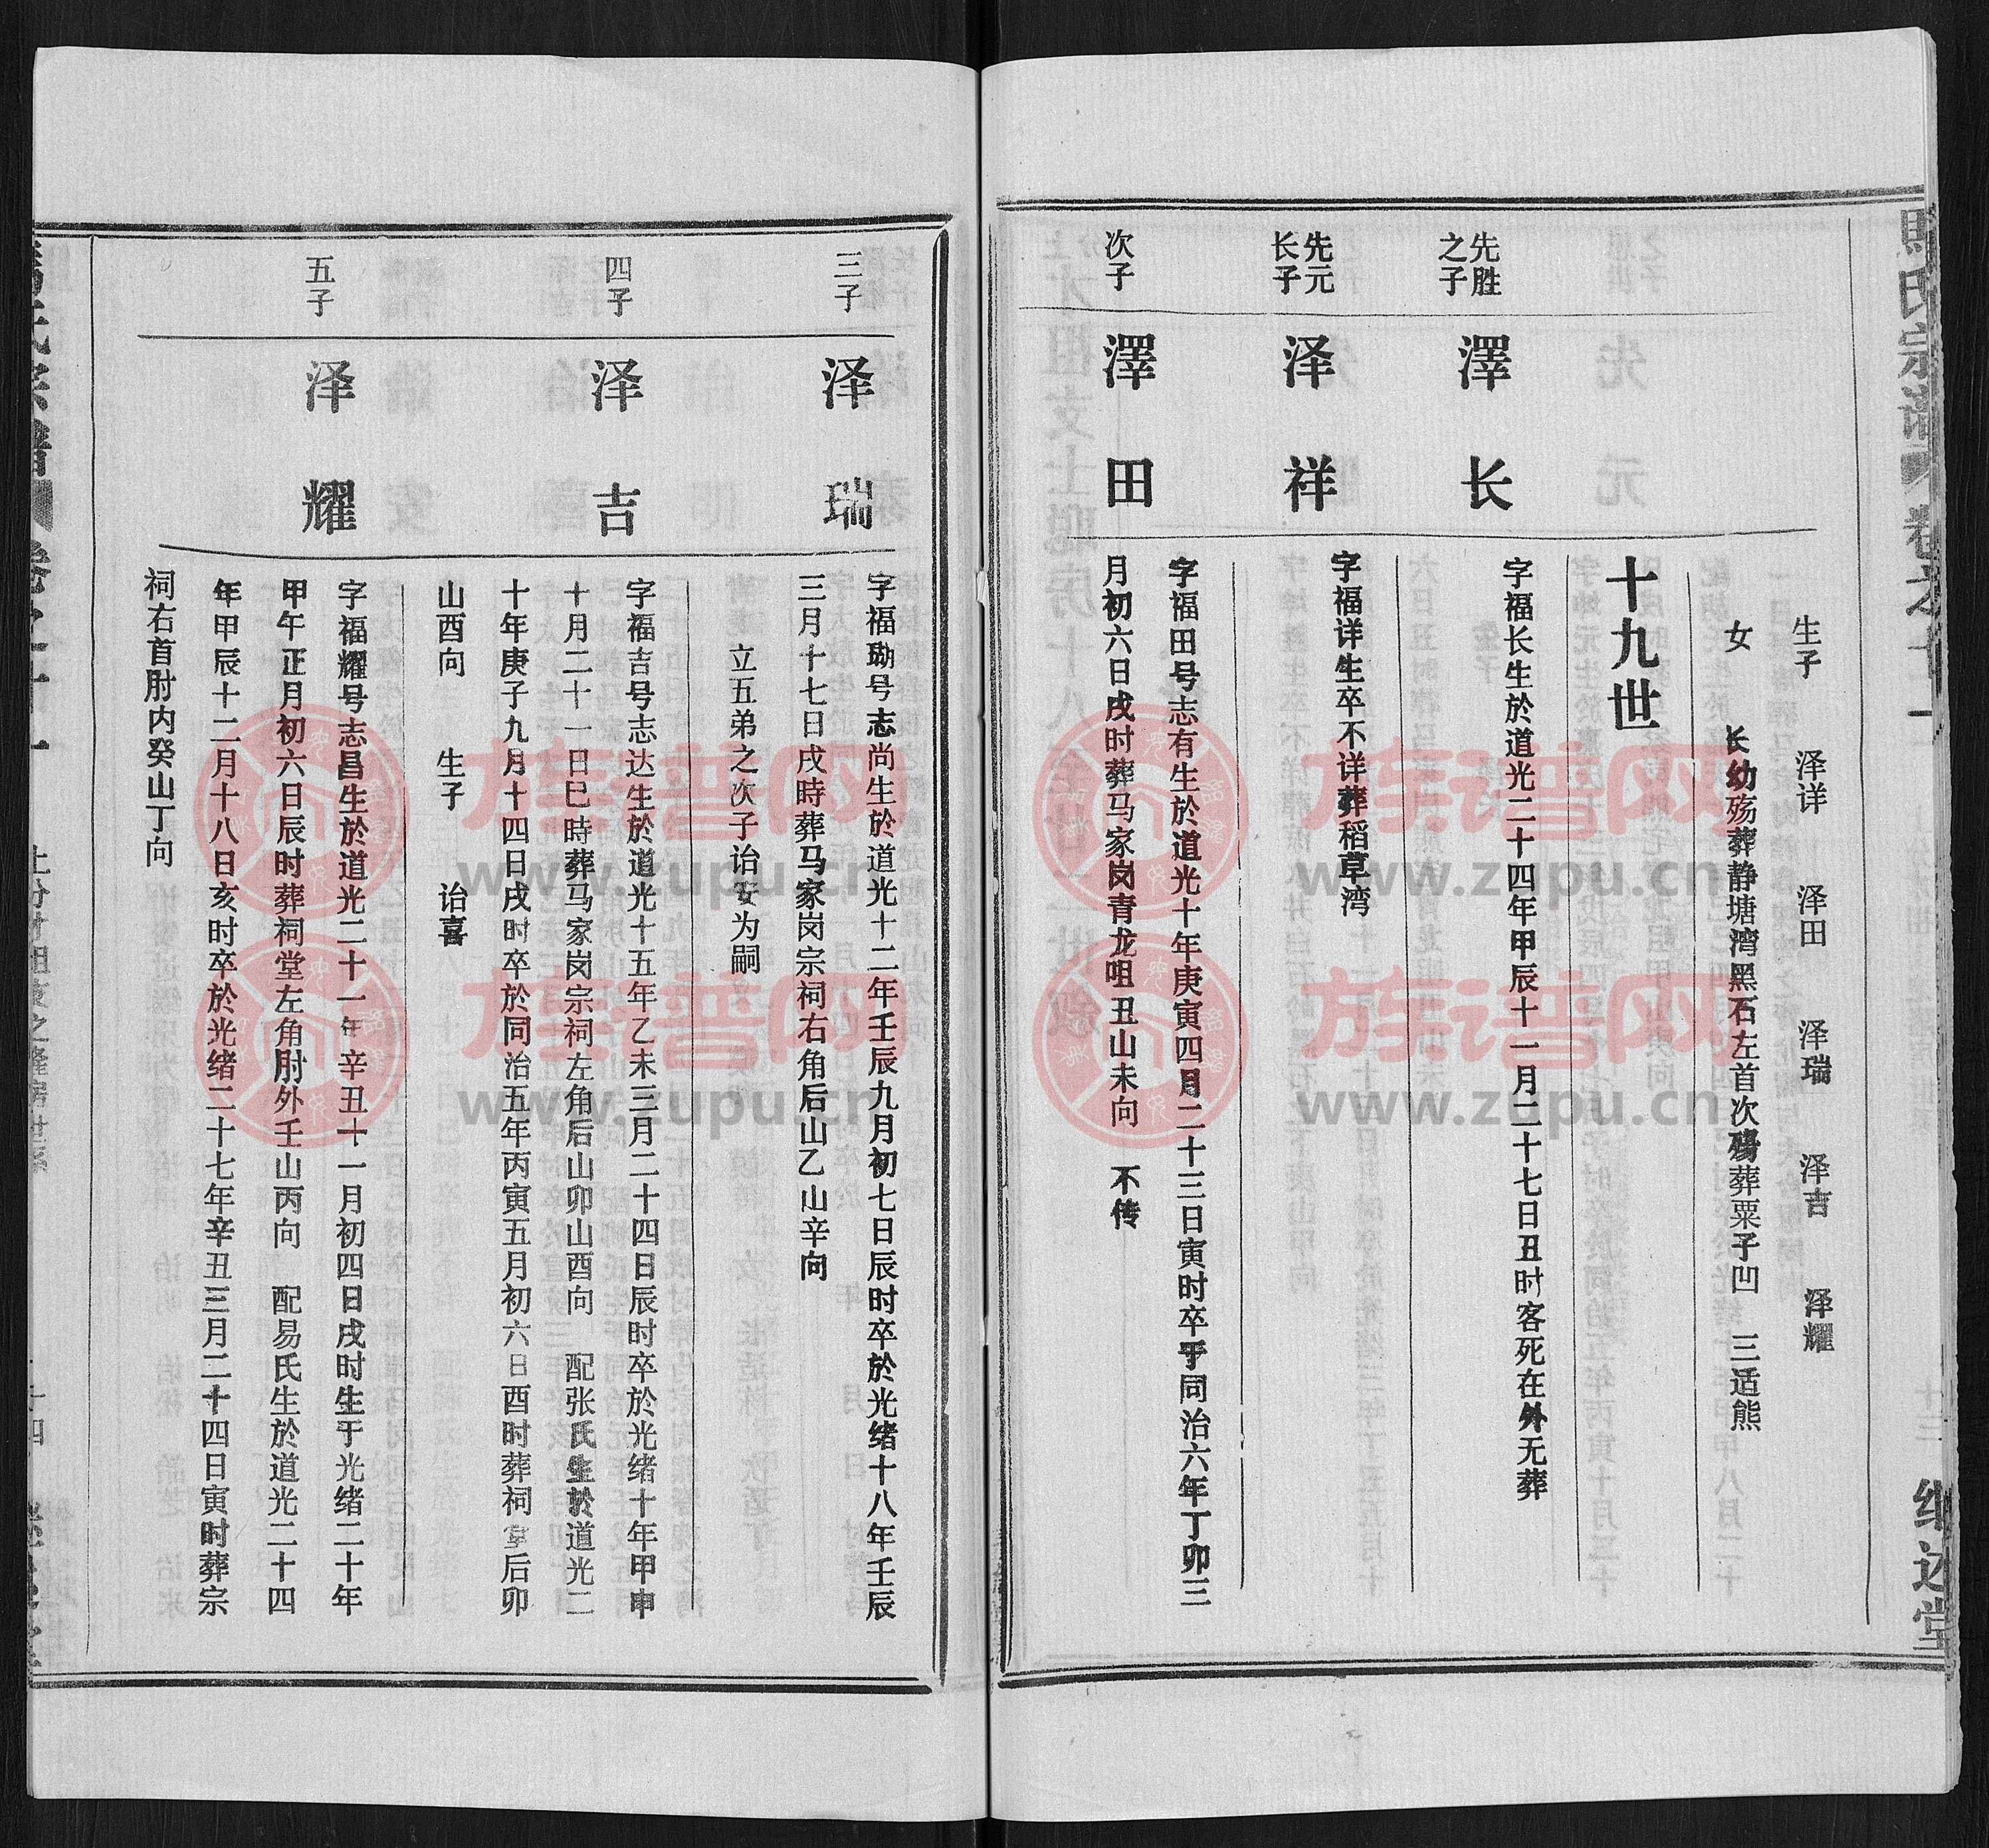 生子　泽详　泽田　泽瑞　泽吉　泽耀
女　长幼殇葬静塘湾黑石左首次殤葬粟子凹　三适熊
十九世
先胜之子
澤长
字福长生於道光二十四年甲辰十一月二十七日丑时客死在外无葬
先元长子
泽祥
字福详生卒不详葬稻草湾
次子
澤田
字福田号志有生於道光十年庚寅四月二十三日寅时卒于同治六年丁卯三
月初六日戌时葬马家岗青龙咀丑山未向　不传
三子
泽瑞
字福瑞号志尚生於道光十二年壬辰九月初七日辰时卒於光绪十八年壬辰
三月十七日戌時葬马家岗宗祠右角后山乙山辛向
立五弟之次子诒安为嗣
四子
泽吉
字福吉号志达生於道光十五年乙未三月二十四日辰时卒於光绪十年甲申
十月二十一日巳時葬马家岗宗祠左角后山卯山酉向　配张氏生於道光二
十年庚子九月十四日戌时卒於同治五年丙寅五月初六日酉时葬祠堂后卯
山酉向　生子　诒喜
五子
泽耀
字福耀号志昌生於道光二十一年辛丑十一月初四日戌时生于光绪二十年
甲午正月初六日辰时葬祠堂左角肘外壬山丙向　配易氏生於道光二十四
年甲辰十二月十八日亥时卒於光绪二十七年辛丑三月二十四日寅时葬宗
祠右首肘内癸山丁向
继述堂
族谱网
www.zupu.cn
族谱网
www.zupu.cn
族谱网
www.zupu.cn
族谱网
www.zupu.cn